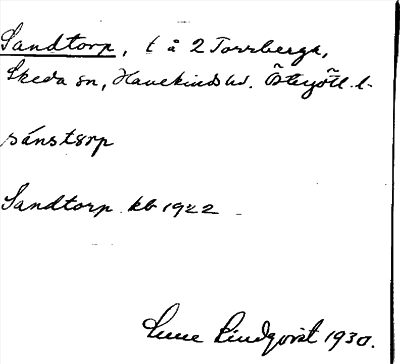 Sandtorp, t å 2 Torrberga,
Skeda sn, Hanekinds hd. Östergötl. l.
sánstɷrp
Sandtorp kb 1922
Sune Lindqvist 1930.